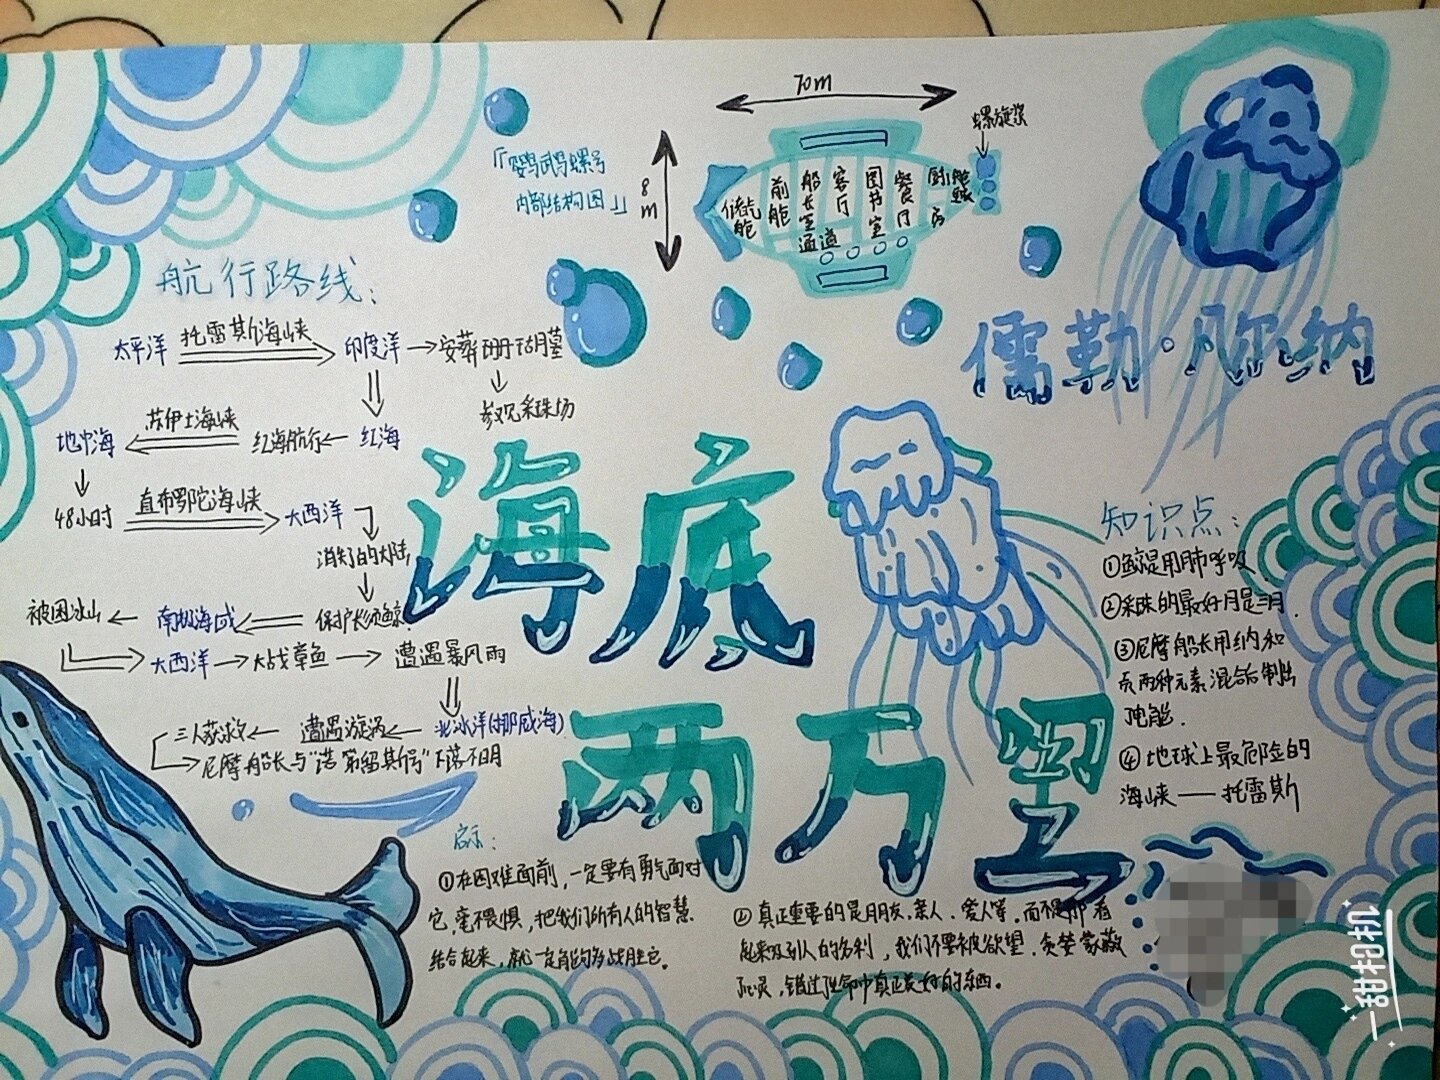 70m
螺旋桨
「鹦鹉螺号
内部结构图」
8m
储气舱
前舱
船长室
通道
客厅
图书室
餐厅
厨房
航行路线：
太平洋
托雷斯海峡
印度洋
安葬珊瑚墓
参观采珠场
苏伊士海峡
地中海
红海航行
红海
48小时
直布罗陀海峡
大西洋
消失了的大陆
被困冰山
南极海域
保护长须鲸
大西洋
大战章鱼
遭遇暴风雨
三人获救
遭遇漩涡
北冰洋(挪威海)
尼摩船长与“诺第留斯号”下落不明
儒勒·凡尔纳
海底
两万里
知识点：
①鲸是用肺呼吸.
②采珠的最好月是三月.
③尼摩船长用纳和
汞两种元素混合后制出
电能.
④地球上最危险的
海峡——托雷斯
启示：
①在困难面前，一定要有勇气面对
它，毫不畏惧，把我们所有人的智慧
结合起来，就一定能够战胜它。
②真正重要的是朋友、亲人、爱人等，而不是那看
起来及别人的名利，我们不要被欲望、贪婪蒙蔽
心灵，错过生命中真正美好的东西。
甜相机